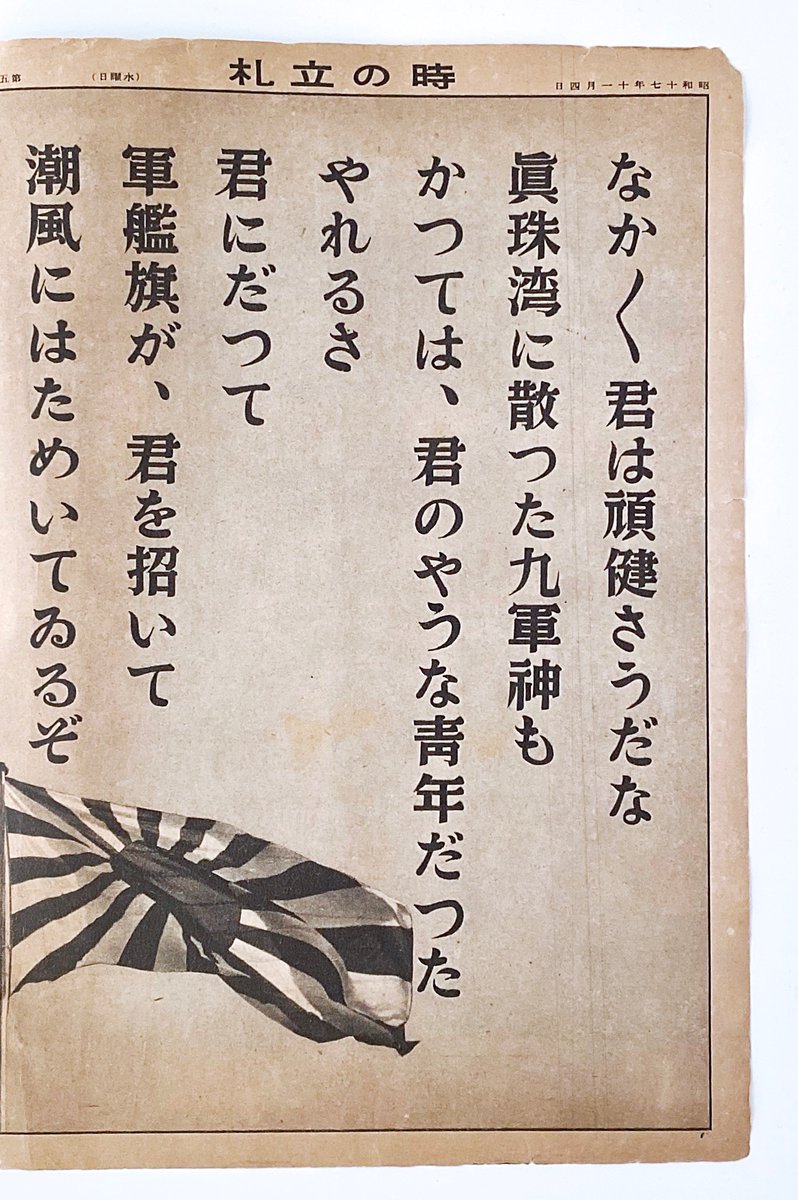 昭和十七年十一月四日
時の立札
(水曜日)
第五
なか〳〵君は頑健さうだな
眞珠湾に散つた九軍神も
かつては、君のやうな青年だつた
やれるさ
君にだつて
軍艦旗が、君を招いて
潮風にはためいてゐるぞ